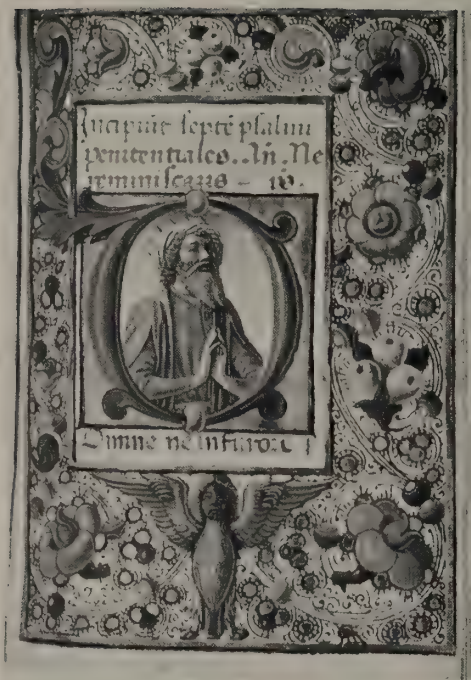 Incipiūt septē psalmi
penitentiales.. Añ. Ne
reminiscaris –
Domine ne in furore